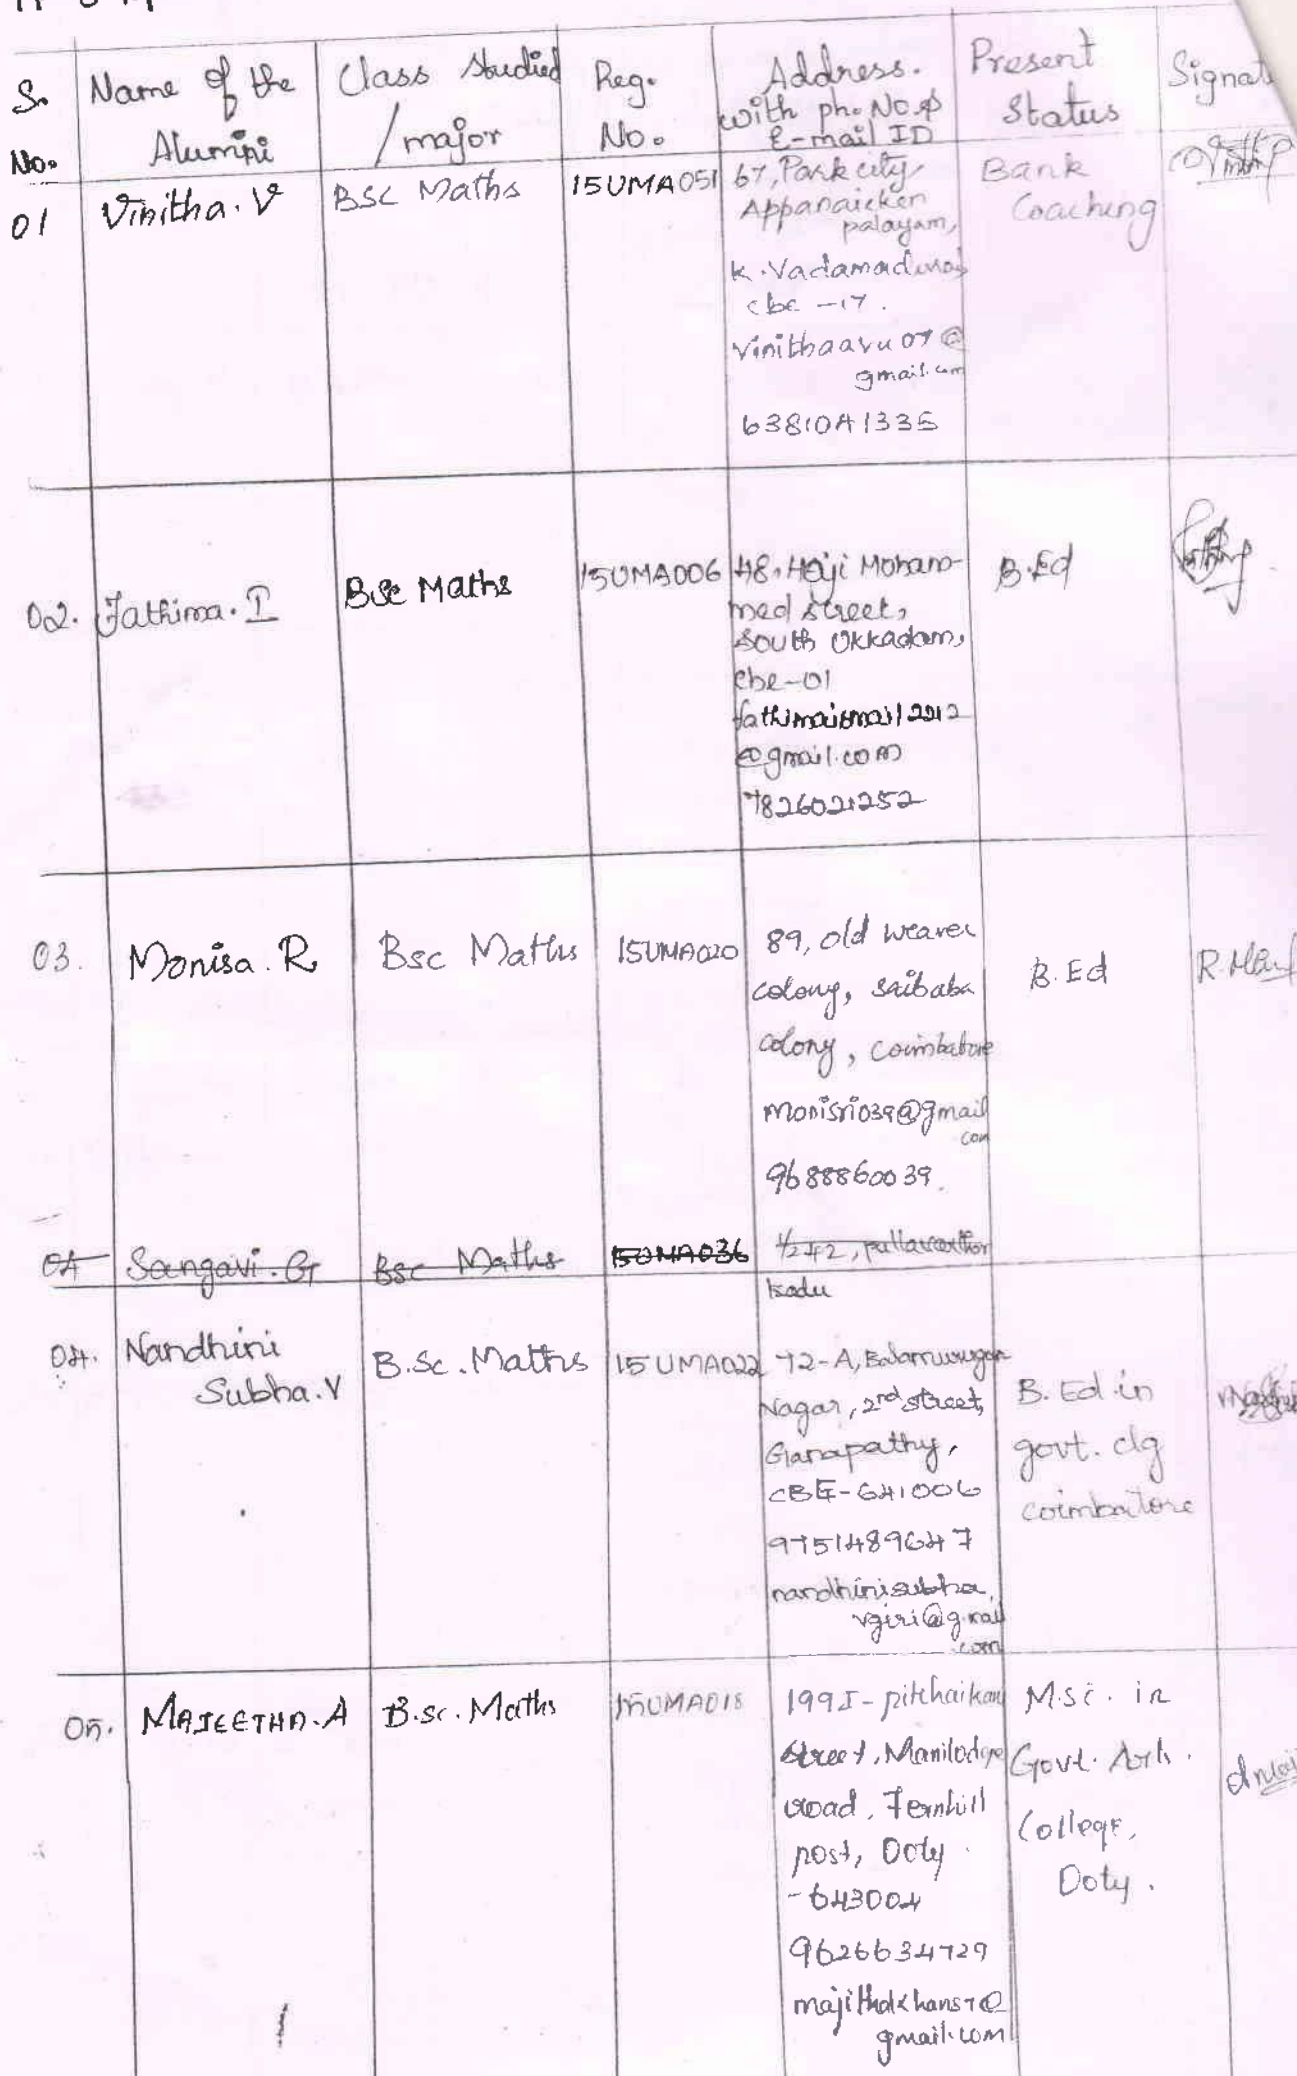 S. No.
Name of the Alumini
Class studied / major
Reg. No.
Address. with ph. No. & E-mail ID
Present Status
Signat
01
Vinitha. V
BSC Maths
15UMA051
67, Park city,
Appanaicken
palayam,
K. Vadamadurai
cbe -17.
vinithaavu07@
gmail.com
6381041335
Bank
Coaching
02.
Fathima. I
BSc Maths
15UMA006
48, Haji Moham-
med street,
South Ukkadam,
cbe-01
fathimaismail2212
@gmail.com
7826021252
B.Ed
03.
Monisa. R
Bsc Maths
15UMA020
89, old weaver
colony, saibaba
colony, coimbatore
monisri039@gmail
com
9688860039.
B. Ed
04
Sangavi. G
Bsc Maths
15UMA036
1/242,
kadu
04.
Nandhini
Subha. V
B.Sc. Maths
15UMA022
72-A, Balamurugan
Nagar, 2nd street,
Ganapathy,
CBE-641006
9751489647
nandhinisubha.
vgiri@gmail
.com
B. Ed in
govt. clg
coimbatore
05.
MAJEETHA. A
B.sc. Maths
15UMA018
street, Manilodge
road, Fernhill
post, Ooty
-643004
9626634729
gmail.com
M.sc. in
Govt. Arts.
College,
Ooty.